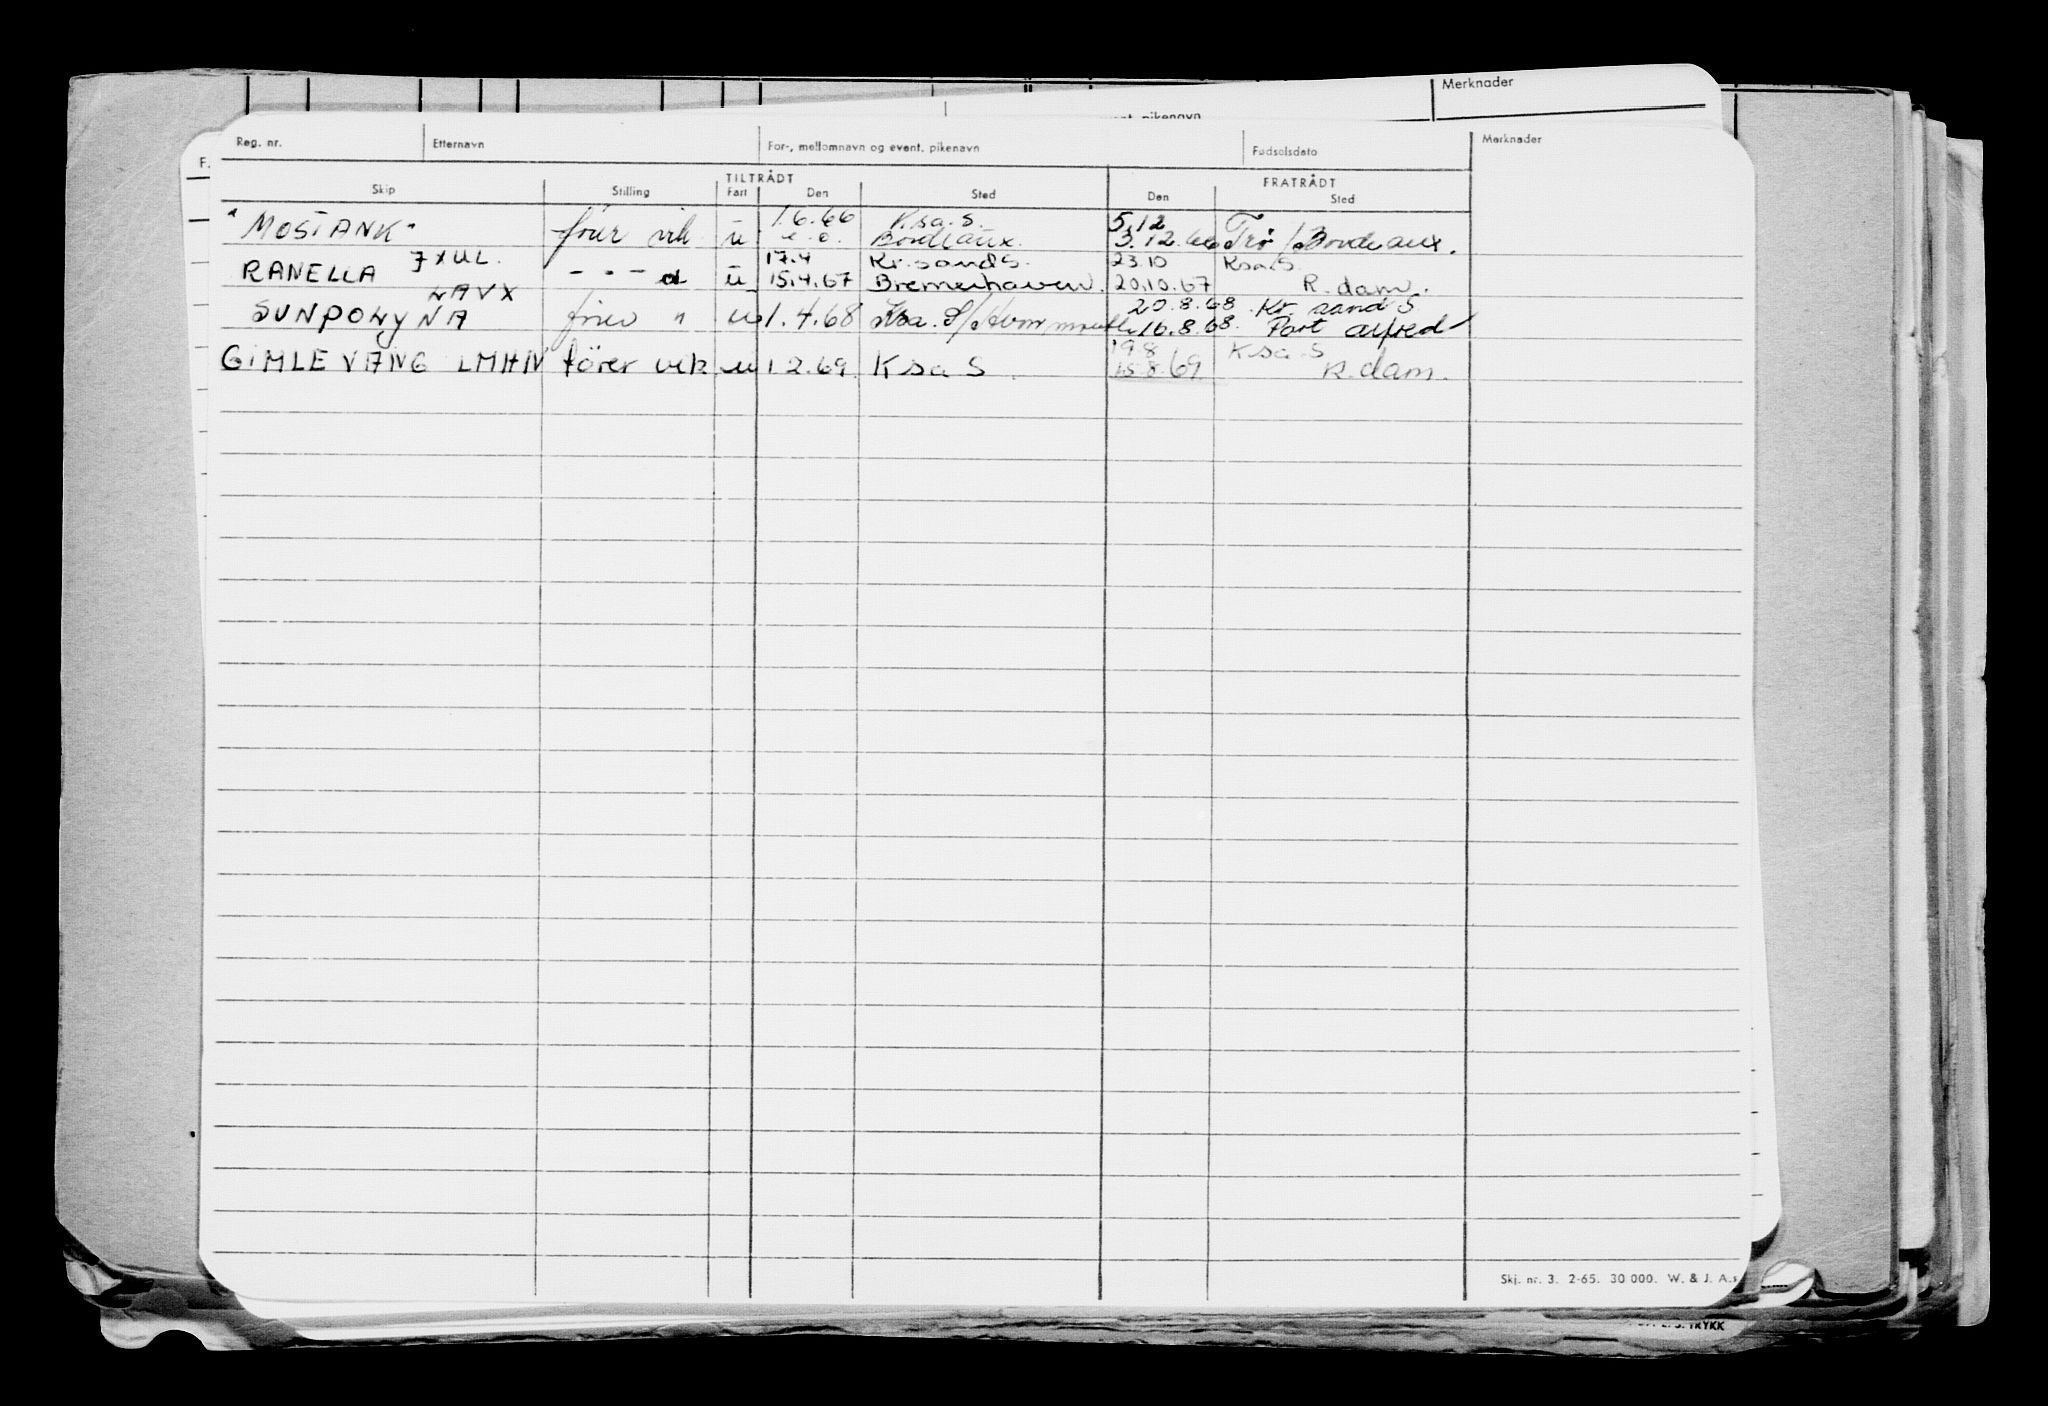 Merknader
Reg. nr. Etternavn For-, mellomnavn og event. pikenavn Fødselsdato Merknader
TILTRÅDT FRATRÅDT
Skip Stilling Fart Den Sted Den Sted
"MOSTANK" fører vik u 1.6.66 Ksa. S 5.12
Bordeaux. 3.12.66 Trø / Bordeaux.
RANELLA JXUL - " - d u 17.4 Kr.sand S. 23.10 Ksa. S.
15.4.67 Bremerhaven. 20.10.67 R. dam.
SUNPOLYNA LAVX fører " u 1.4.68 Ksa. S/Avonmouth 20.8.68 Kr. sand S
16.8.68. Port alfred
GIMLEVANG LMHN fører vik u 1.2.69 Ksa S 19.8 Ksa. S
15.8.69 R.dam.
Skj. nr. 3. 2-65. 30 000. W. & J. A.s